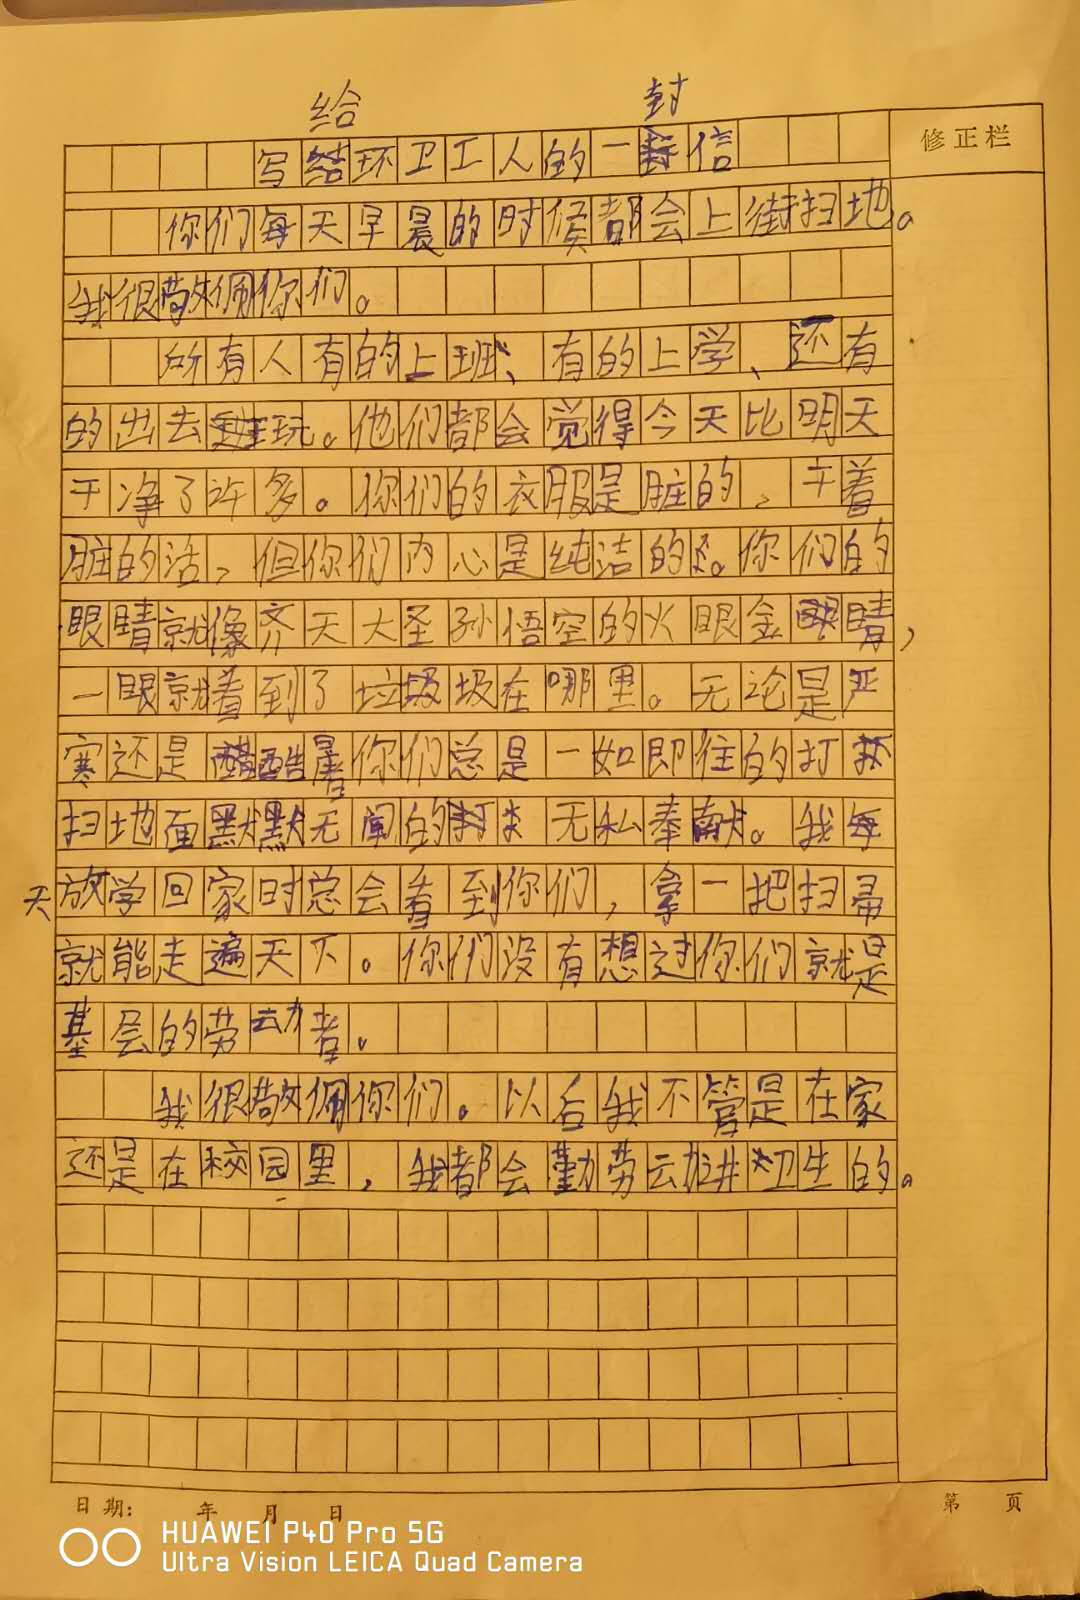 给 封
写结环卫工人的一封信
修正栏
你们每天早晨的时候都会上街扫地。
我很敬佩你们。
所有人有的上班、有的上学、还有
的出去玩。他们都会觉得今天比明天
干净了许多。你们的衣服是脏的,干着
脏的活,但你们内心是纯洁的。你们的
眼睛就像齐天大圣孙悟空的火眼金睛,
一眼就看到了垃圾圾在哪里。无论是严
寒还是酷暑你们总是一如即往的打
扫地面默默无闻的 无私奉献。我每
天放学回家时总会看到你们,拿一把扫帚
就能走遍天下。你们没有想过你们就是
基层的劳动者。
我很敬佩你们。以后我不管是在家
还是在校园里,我都会勤劳动讲卫生的。
日期: 年 月 日
第 页
HUAWEI P40 Pro 5G
Ultra Vision LEICA Quad Camera